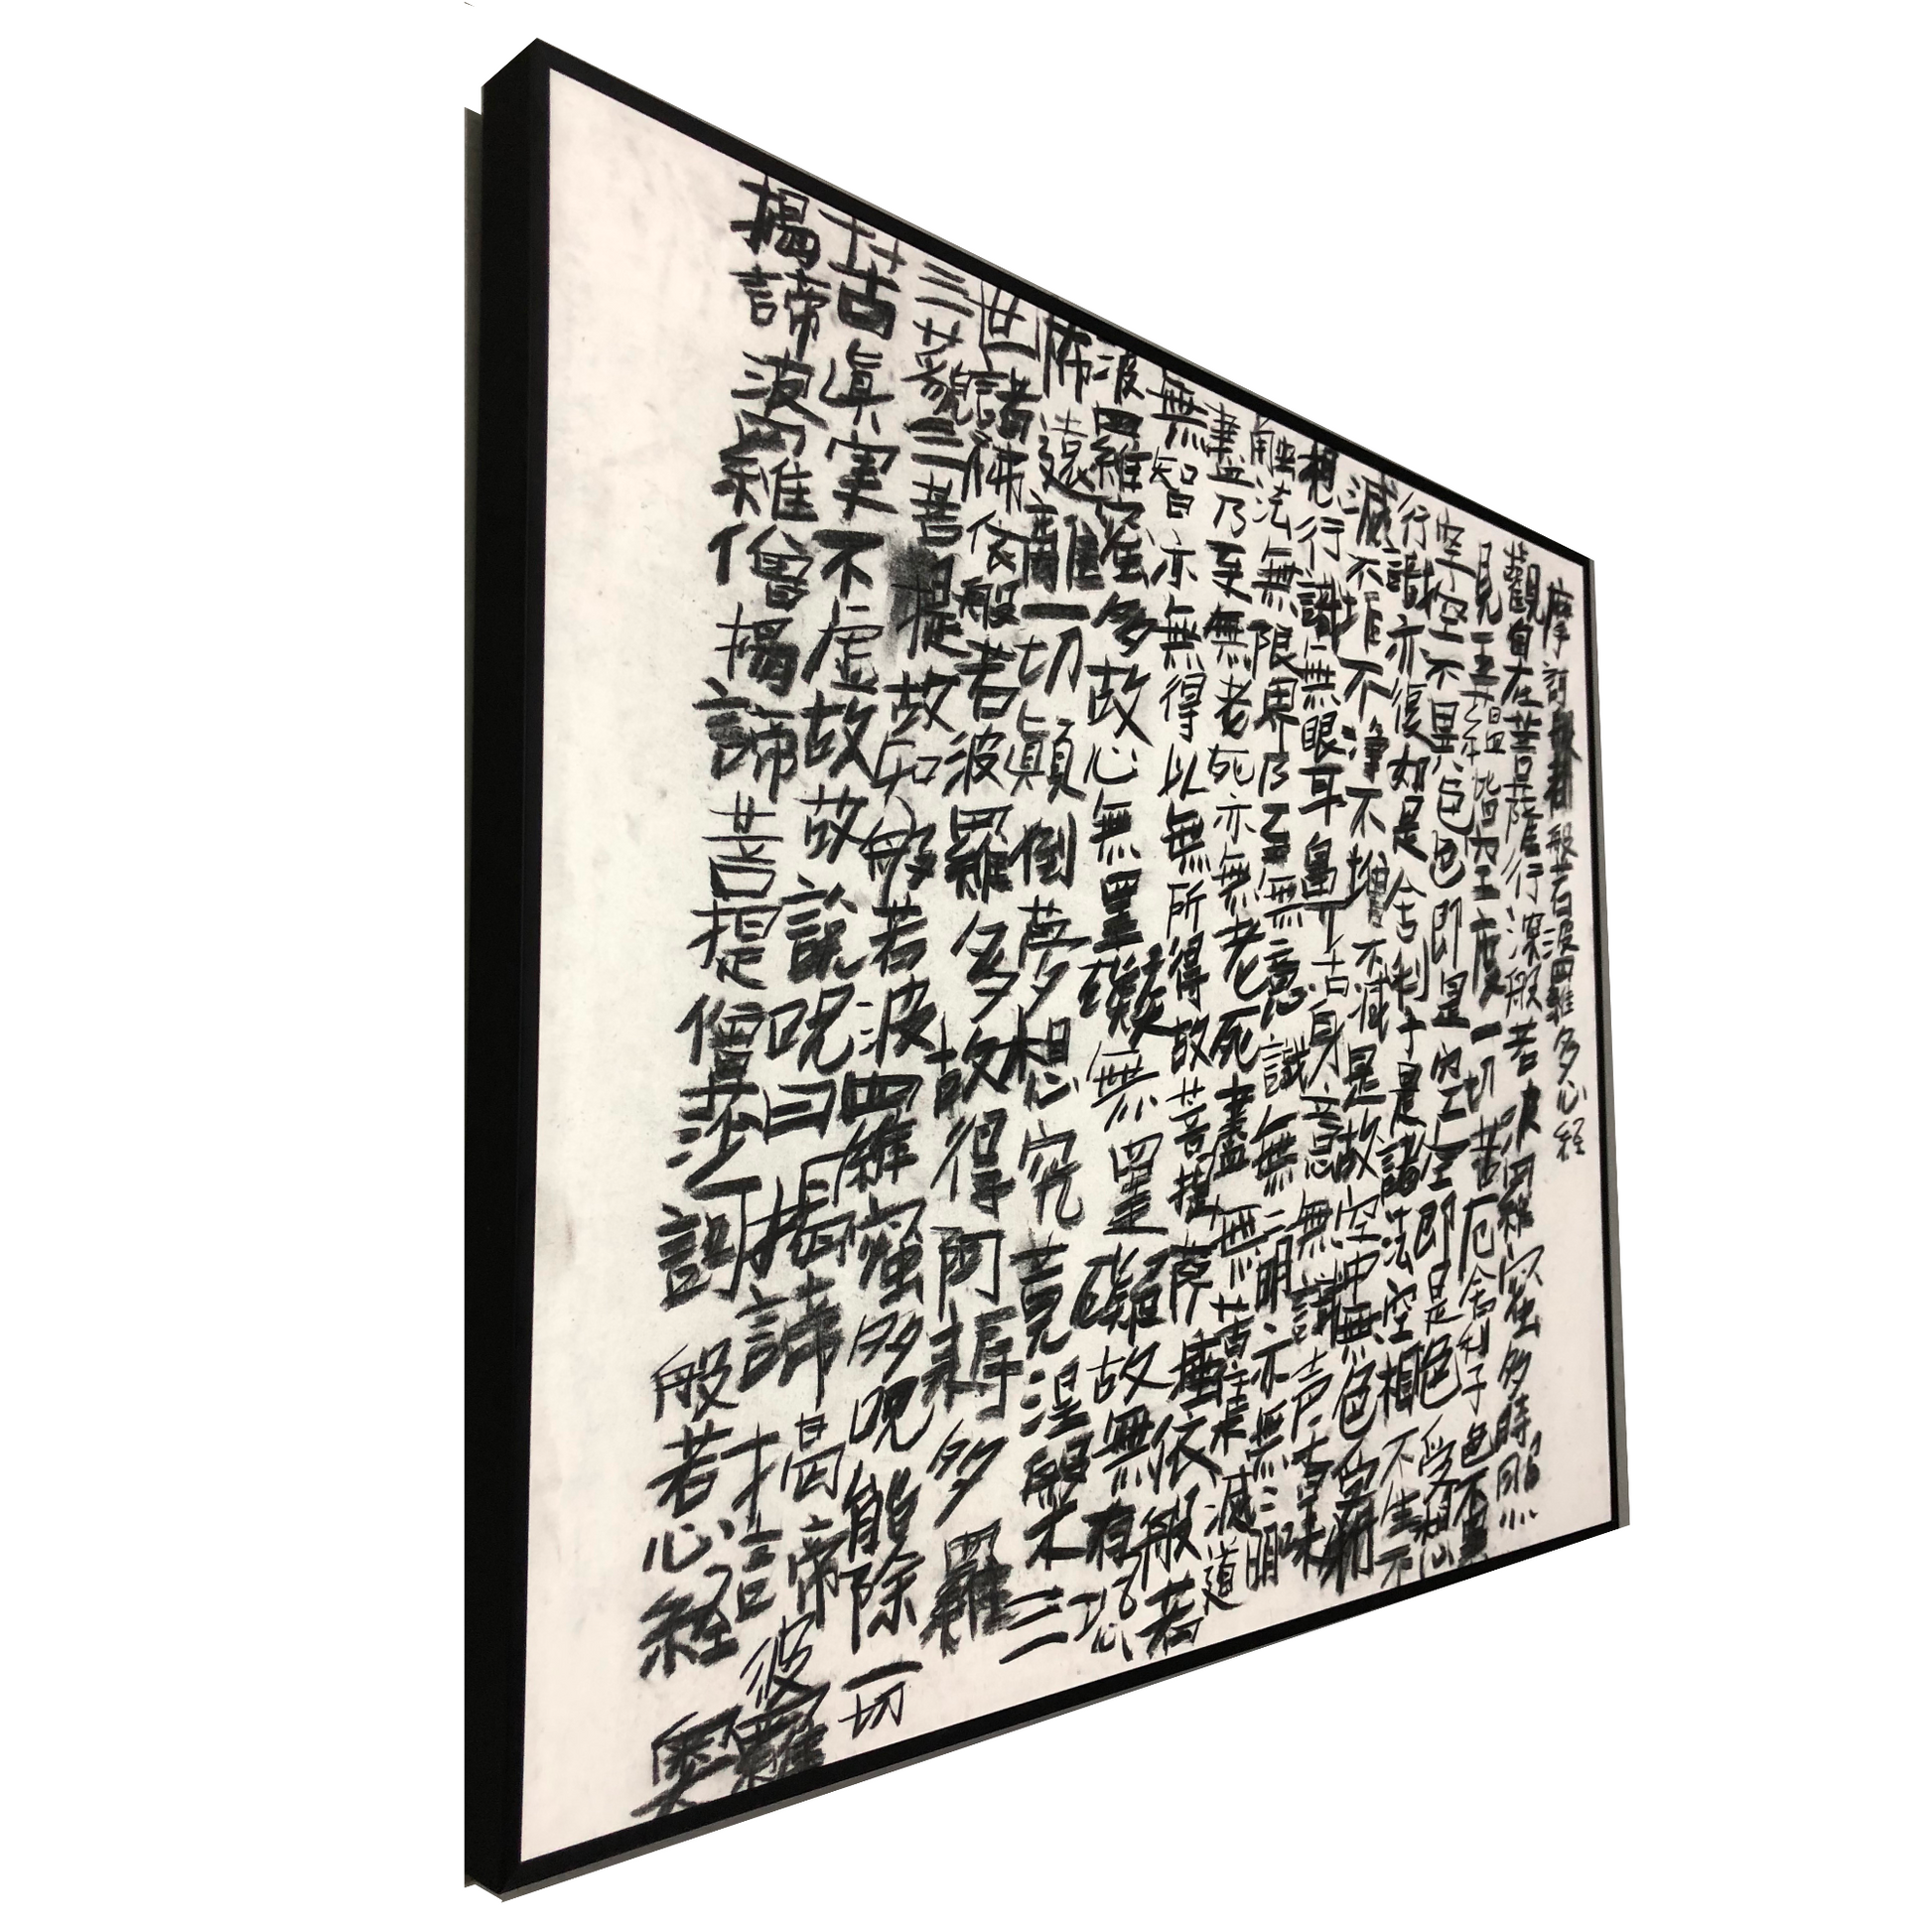 摩訶般若般若波羅多心経
観自在菩薩行深般若波羅蜜多時照
見五蘊皆空度一切苦厄舎利子色不異
空空不異色色即是空空即是色受想
行識亦復如是舎利子是諸法空相不生不
滅不垢不浄不増不減是故空中無色無受
想行識無眼耳鼻舌身意無識声香味
触法無限界乃至無意識無無明亦無無明
盡乃至無老死亦無老死盡無苦集滅道
無智亦無得以無所得故菩提薩埵依般若
波羅蜜多故心無罣礙無罣礙故無有恐
怖遠離一切顛倒夢想究竟涅槃三
世諸佛依般若波羅多故得阿耨多羅
三藐三菩提故知般若波羅蜜多呪能除一切
苦真実不虚故故説呪曰揭諦揭諦波羅
揭諦波羅僧揭諦菩提僧莎訶般若心経